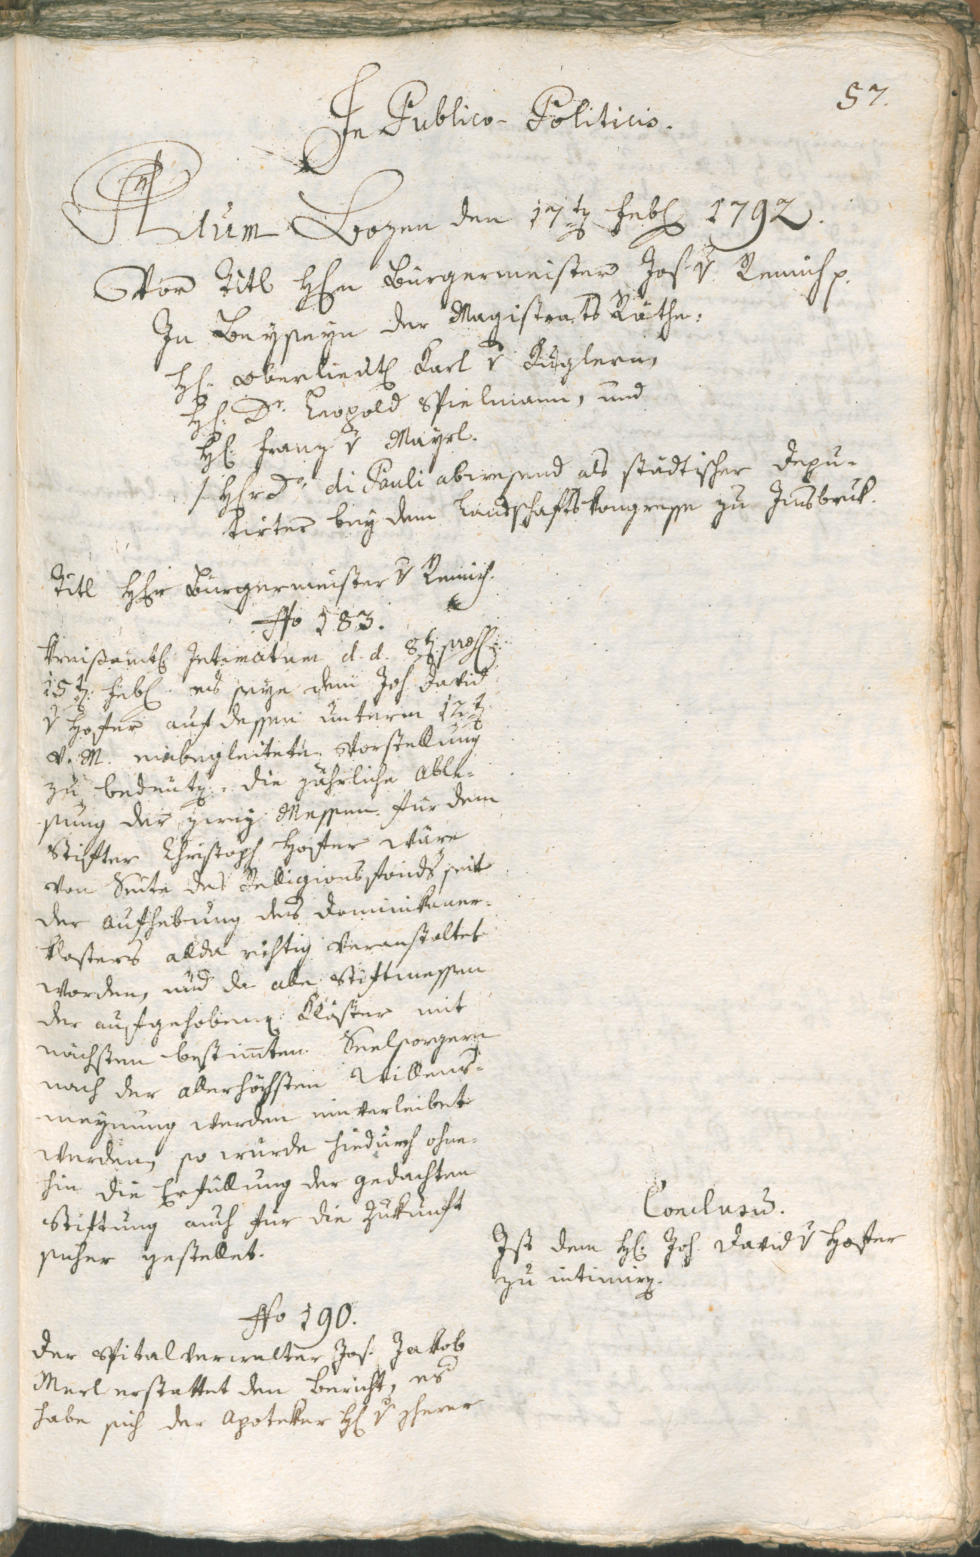 57.
In Publico-Politicis.
Actum Bozen den 17t Febl 1792.
Vor Titl Hhn Bürgermeister Jos: v Remich p.
In Beyseyn der Magistrats Räthe:
Hh. Oberlieut Karl v Kuglern,
Hh: Dr. Leopold Spielmann, und
Hh: Franz v Mayrl.
/ Hhr Dr di Pauli abwesend als städtischer Depu-
tirter bey dem Landschaftskongresse zu Innsbruk.
Titl Hhr Bürgermeister v Remich.
Nro 183.
Kreisamtl Intimatum d. d. 8t
15t: Febl es seye dem Joh David
v Hofer auf dessen unterm 12t
v. M. einbegleitete Vorstellung
zu bedeuten: die jährliche Able-
sung der zwey Messen für dem
Stifter Christoph Hofer wäre
von Seite des Religionsfonds seit
der Aufhebung des Dominikaner-
klosters allda richtig veranstaltet
worden, und da alle Stiftmessen
der aufgehobenen Klöster mit
nächsten bestimten Seelsorgern
nach der allerhöchsten Willens-
meynung werden einverleibet
werden, so würde hiedurch ohne-
hin die Erfüllung der gedachten
Stiftung auch für die Zukunft
sicher gestellet.
Conclusum.
Ist dem Hh: Joh David v Hofer
zu intimiren.
Nro 190.
Der Spitalverwalter Jos. Jakob
Merl erstattet den Bericht, es
habe sich der Apoteker Hh v